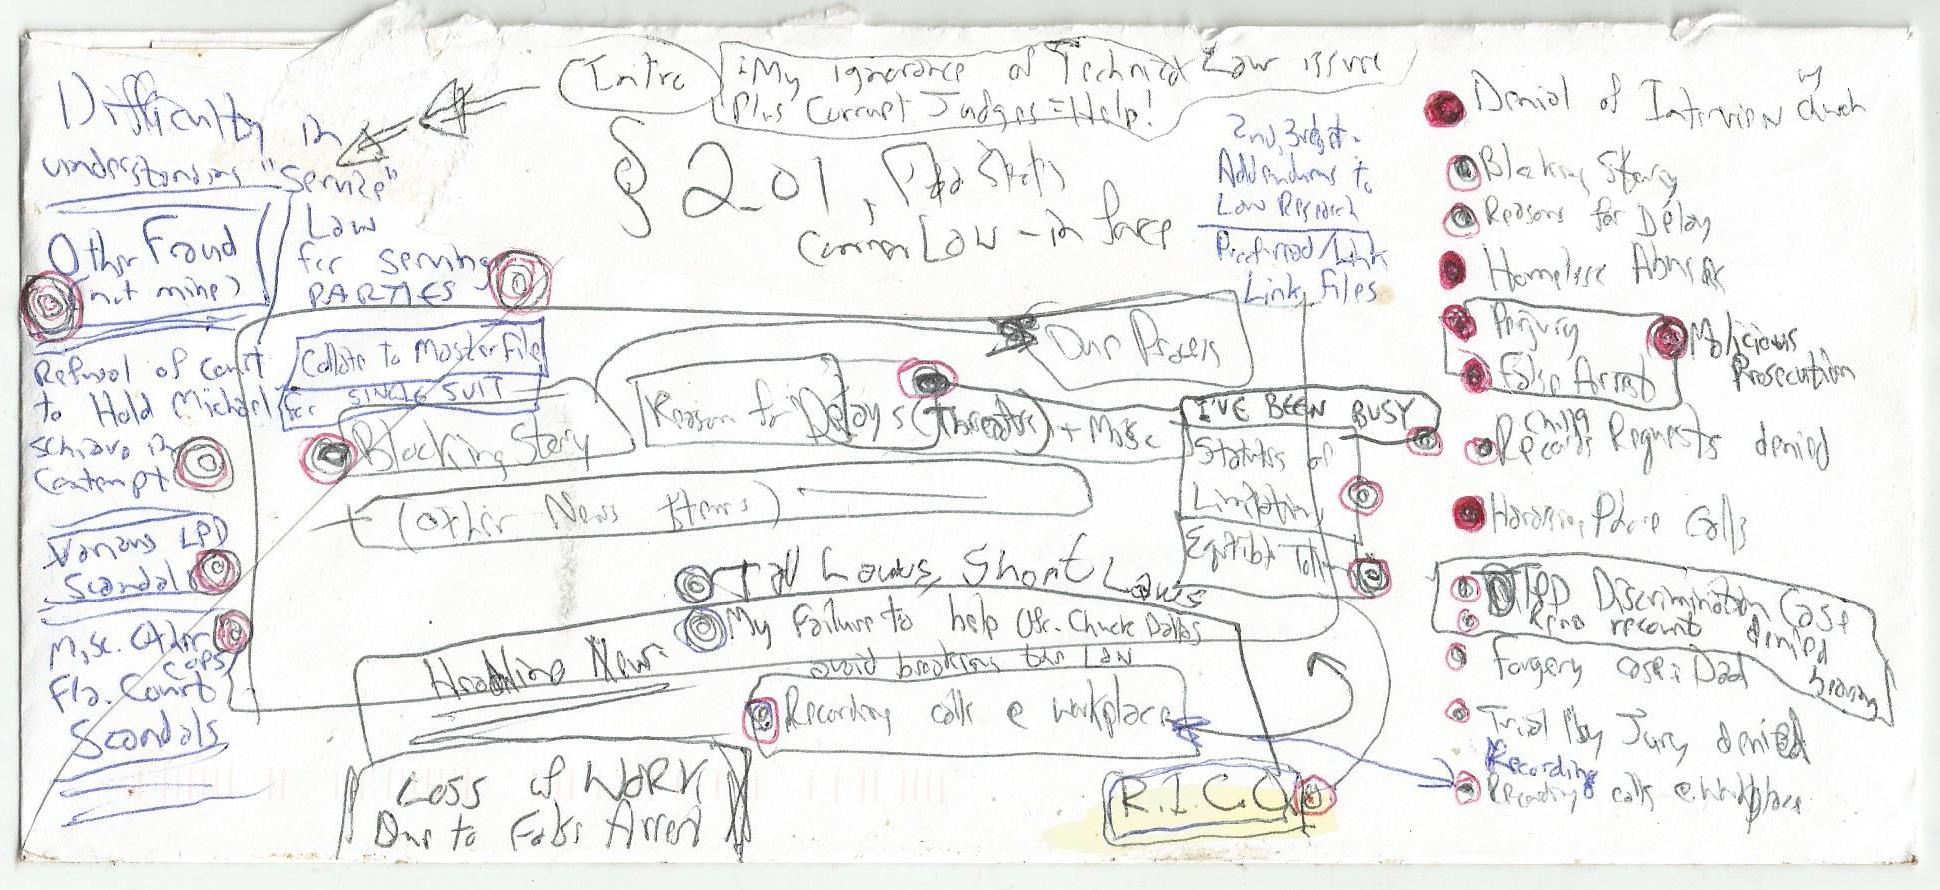 Intro
: My ignorance of Technical Law issues
Plus Corrupt Judges = Help!
Difficulty in
understanding "service"
Other Fraud
(not mine)
Law
for serving
PARTIES
§ 2.01, Fla Stats
Common Law - in force
2nd, 3rd, et.
Addendums to
Law Research
Proofread/Link
Link files
Refusal of court
to Hold Michael
Schiavo in
Contempt
Various LPD
Scandals
Misc. Other
cops
Fla. Court
Scandals
Collate to Master File
for SINGLE SUIT
Due Process
Blocking Story
Reason for Delays (Threats) + Misc
+ (Other News Items)
I'VE BEEN BUSY
Statutes of
Limitation
Equitable Toll
Tall Laws, Short Laws
My Failure to help Ofc. Chuck Dallas
avoid breaking the Law
Headline News
Recording calls @ workplace
Loss of WORK
Due to False Arrest
R.I.C.O.
Denial of Interview church
Blocking Story
Reasons for Delay
Homeless Abuse
Perjury
False Arrest
Malicious
Prosecution
Ch.119
Records Requests denied
Harassing Phone Calls
TPD Discrimination Case
recount denied
Forgery case: Dad
Trial By Jury denied
Recording
Recording calls @ workplace